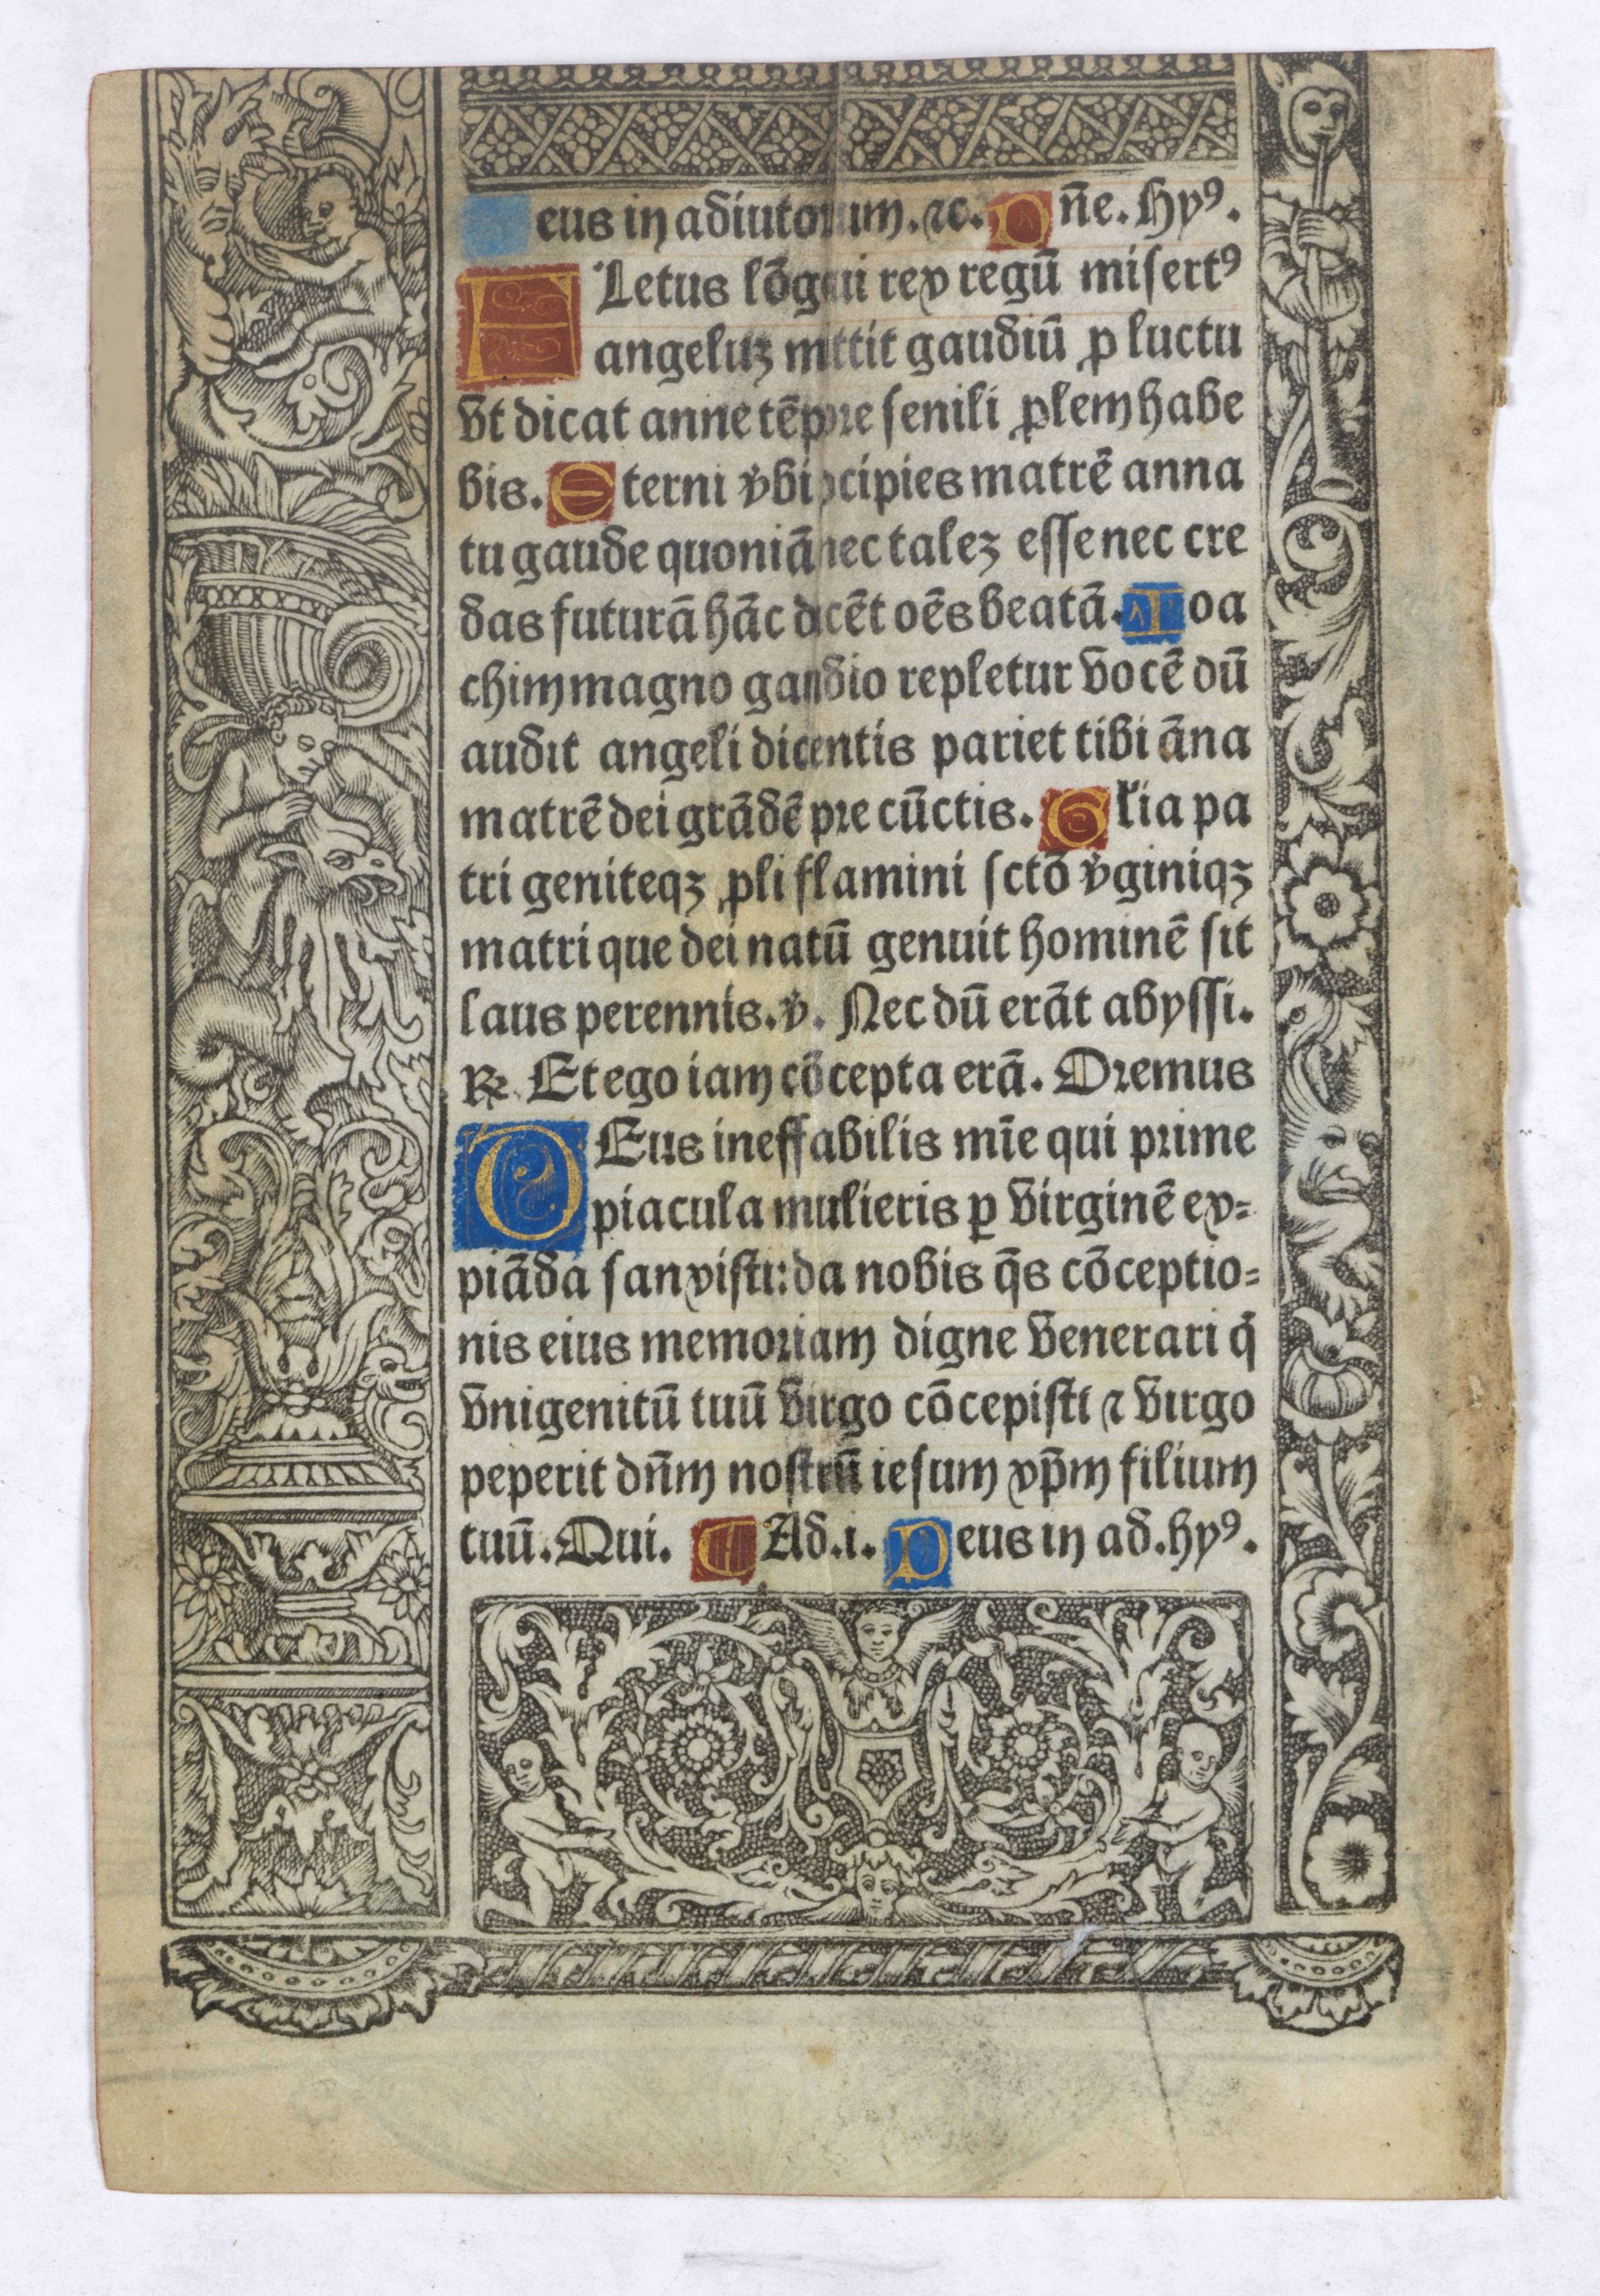 eus in adiutorium. ⁊c. D ñe. Hyꝰ.
F Letus lōgui rex regū misertꝰ
angeluȝ mittit gaudiū ꝓ luctu
vt dicat anne tēpore senili ꝓlem habe
bis. E terni v̾bi ↄcipies matrē anna
tu gaude quoniā nec talez esse nec cre
das futurā hāc dicēt oēs beatā. I oa
chim magno gaudio repletur vocē dū
audit angeli dicentis pariet tibi āna
matrē dei grādē pre cūctis. G l'ia pa
tri geniteqȝ ꝓli flamini sctō v̾giniqȝ
matri que dei natū genuit hominē sit
laus perennis. v̾. Nec dū erāt abyssi.
℟. Et ego iam cōcepta erā. Oremus
D Eus ineffabilis mīe qui prime
piacula mulieris ꝑ virginē ex=
piāda sanxisti: da nobis q̄s cōceptio=
nis eius memoriam digne venerari q̄
vnigenitū tuū virgo cōcepisti ⁊ virgo
peperit dn̄m nostrū iesum xp̄m filium
tuū. Qui. ¶ Ad .i. D eus in ad. hyꝰ.